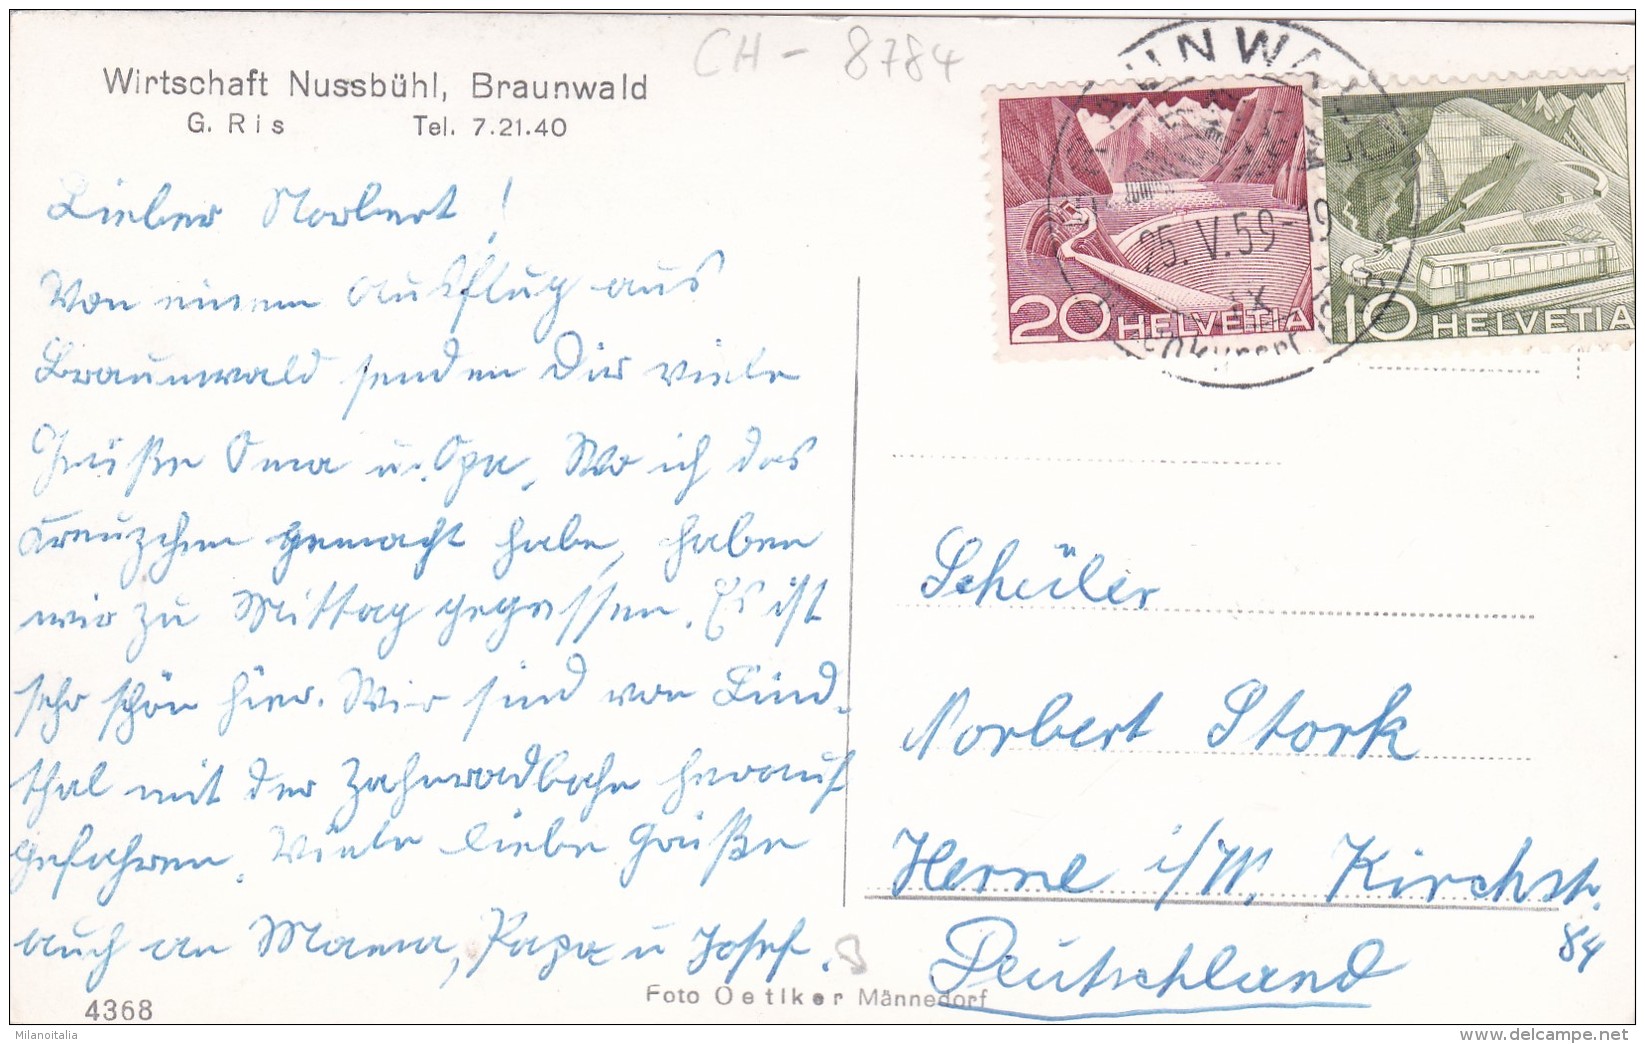 CH - 8784
Wirtschaft Nussbühl, Braunwald
G. Ris Tel. 7.21.40
Lieber Norbert!
Von einem Ausflug aus
Braunwald senden Dir viele
Grüße Oma u. Opa. Wo ich das
Kreuzchen gemacht habe, haben
wir zu Mittag gegessen. Es ist
sehr schön hier. Wir sind von Lind-
thal mit der Zahnradbahn herauf
gefahren. Viele liebe Grüße
auch an Mama, Papa u Josef.
BRAUNWALD
25.V.59-19
20 HELVETIA
10 HELVETIA
Schüler
Norbert Stork
Herne i/W. Kirchstr.
84
Deutschland
Foto Oetiker Männedorf
4368
Milanoitalia
www.delcampe.net